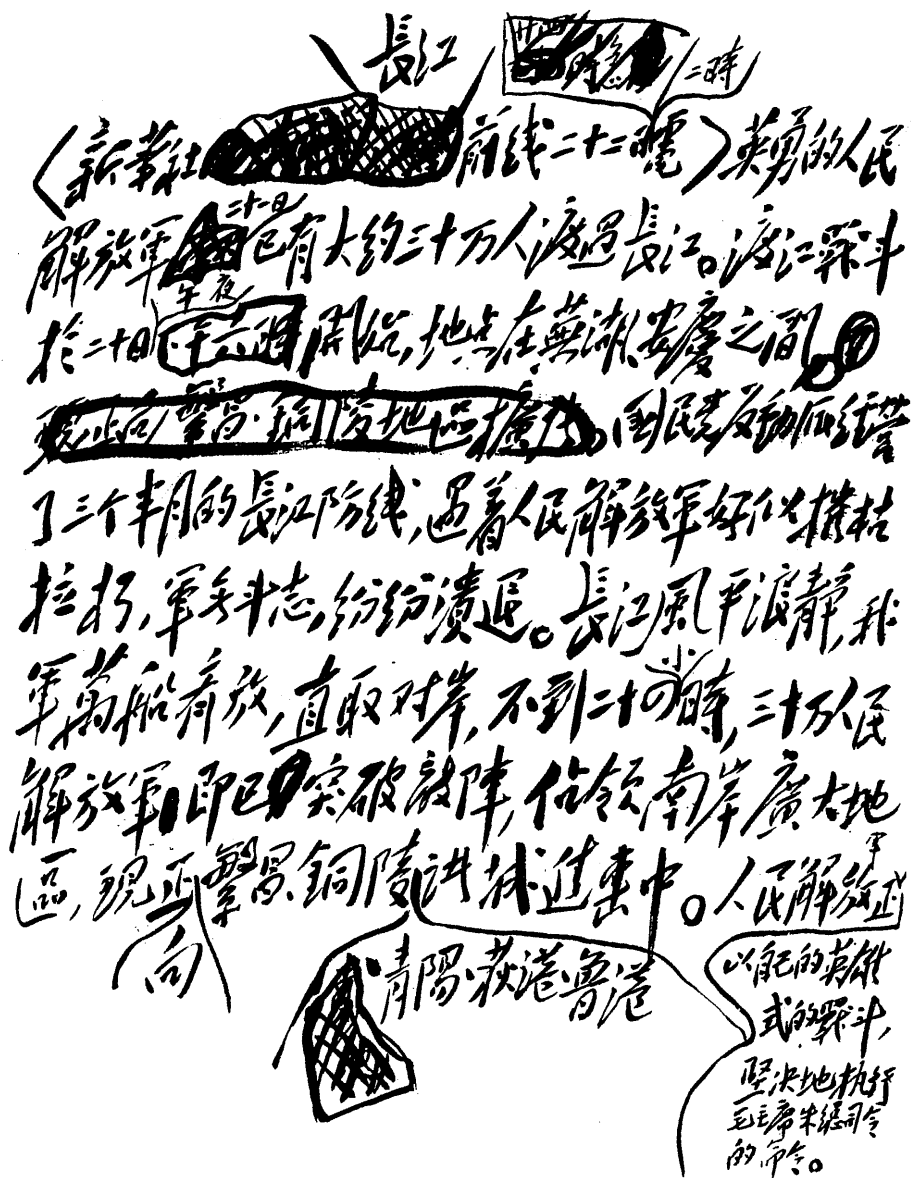 長江
二時
（新華社前线二十二電）英勇的人民
二十一日
解放軍已有大約三十万人渡过長江。渡江戰斗
午夜
於二十日開始，地点在蕪湖、安慶之間。
現正向繁昌、銅陵地區擴大。國民党反動派经营
了三个半月的長江防线，遇着人民解放軍好似摧枯
拉朽，軍无斗志，纷纷潰退。長江風平浪静，我
軍萬船齊放，直取对岸，不到二十四小時，三十万人民
解放軍即已突破敵陣，佔领南岸廣大地
區，現正向繁昌、銅陵、青陽、荻港、魯港
諸城進擊中。人民解放軍正
以自己的英雄
式的戰斗，
堅決地执行
毛主席朱總司令
的命令。